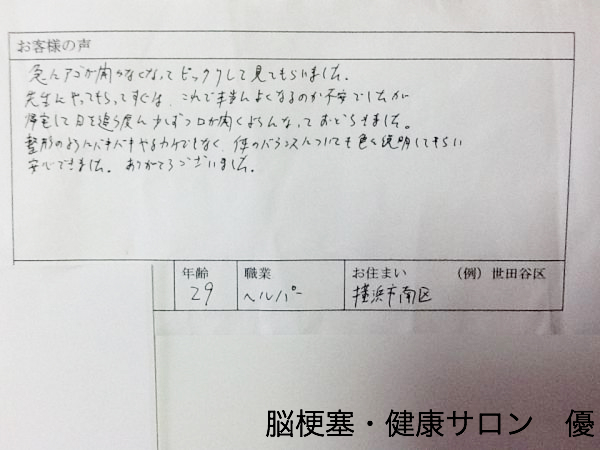 お客様の声
急にアゴが開かなくなってビックリして見てもらいました。
先生にやってもらってすぐは、これで本当によくなるのか不安でしたが
帰宅して日を追う度に少しずつ口が開くようになっておどろきました。
整形のようにバキバキやるわけでもなく、体のバランスについても色々説明してもらい
安心できました。ありがとうございました。
年齢 職業 お住まい （例）世田谷区
29 ヘルパー 横浜市南区
脳梗塞・健康サロン 優